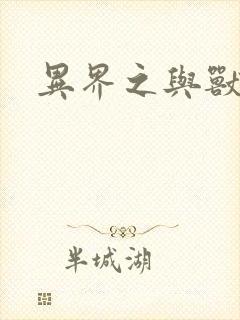 異界之與獸
半城湖